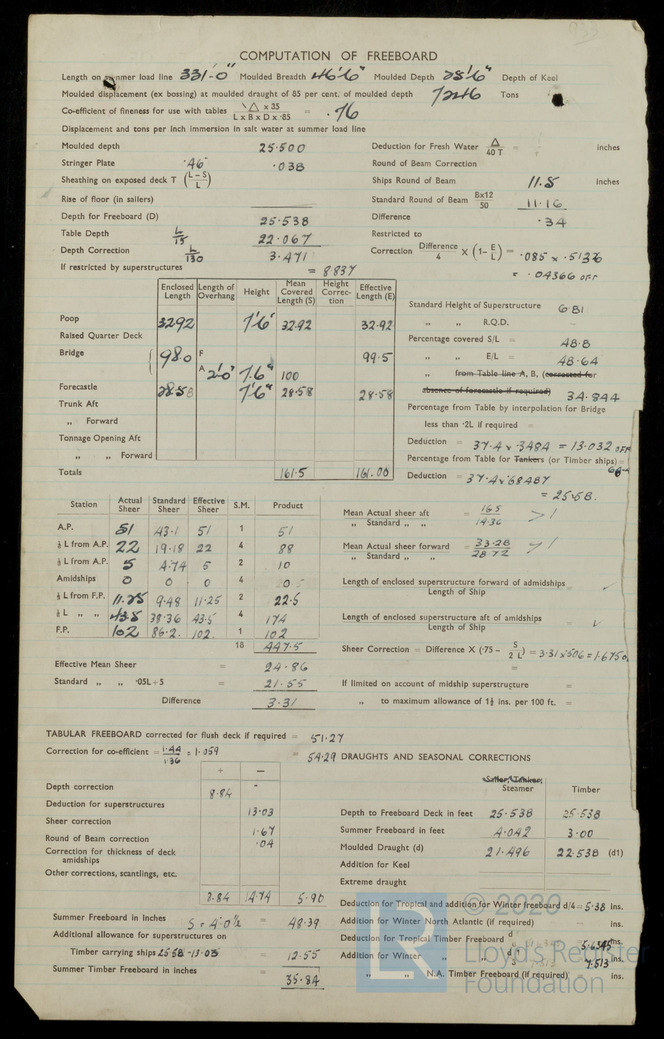 COMPUTATION OF FREEBOARD
Length on summer load line 331'-0" Moulded Breadth 46'6" Moulded Depth 25'6" Depth of Keel
Moulded displacement (ex bossing) at moulded draught of 85 per cent. of moulded depth 7246 Tons
Co-efficient of fineness for use with tables △ x 35 / L x B x D x ·85 = ·76
Displacement and tons per inch immersion in salt water at summer load line
Moulded depth 25.500 Deduction for Fresh Water △ / 40 T = inches
Stringer Plate ·46" ·038 Round of Beam Correction
Sheathing on exposed deck T (L – S / L) Ships Round of Beam 11.5 inches
Rise of floor (in sailers) Standard Round of Beam Bx12 / 50 11.16
Depth for Freeboard (D) 25.538 Difference ·34
Table Depth L/15 22.067 Restricted to
Depth Correction L/130 3.471 Correction Difference / 4 X (1– E/L) = ·085 x ·5136
If restricted by superstructures = 8837 = ·04366 OFF
Enclosed Length Length of Overhang Height Mean Covered Length (S) Height Correc- tion Effective Length (E)
Standard Height of Superstructure 6.81
Poop 32.92 7'6" 32.92 32.92 " " R.Q.D. –
Raised Quarter Deck Percentage covered S/L = 48.8
Bridge 98.0 F 99.5 " " E/L = 48.64
A 2'0" 7.6" 100 " from Table line A, B, (corrected for
Forecastle 28.58 7'6" 28.58 28.58 absence of forecastle if required) 34.844
Trunk Aft Percentage from Table by interpolation for Bridge
" Forward less than ·2L if required =
Tonnage Opening Aft Deduction = 37.4 x ·3484 = 13.032 OFF
" " Forward Percentage from Table for Tankers (or Timber ships) =
Totals 161.5 161.00 Deduction = 37.4 x ·68487
= 25.58.
Station Actual Sheer Standard Sheer Effective Sheer S.M. Product
Mean Actual sheer aft / " Standard " " = 16.5 / 14.36 > 1
A.P. 51 43.1 51 1 51
⅙ L from A.P. 22 19.18 22 4 88 Mean Actual sheer forward / " Standard " " = 33.28 / 28.72 > 1
⅓ L from A.P. 5 4.74 5 2 10
Amidships 0 0 0 4 0 Length of enclosed superstructure forward of admidships / Length of Ship =
⅓ L from F.P. 11.25 9.48 11.25 2 22.5
⅙ L " " 43.5 38.36 43.5 4 174 Length of enclosed superstructure aft of amidships / Length of Ship =
F.P. 102 86.2. 102. 1 102
18 447.5 Sheer Correction = Difference X (·75 – S / 2 L) = 3.31 x ·506 = 1.675
Effective Mean Sheer = 24.86 =
Standard " " ·05L+5 = 21.55 If limited on account of midship superstructure =
Difference 3.31 " to maximum allowance of 1½ ins. per 100 ft. =
TABULAR FREEBOARD corrected for flush deck if required = 51.27
Correction for co-efficient = 1.44 / 1.36 = 1.059 = 54.29
DRAUGHTS AND SEASONAL CORRECTIONS
+ – Sailer, Tanker, Steamer Timber
Depth correction 8.84 -
Deduction for superstructures 13.03 Depth to Freeboard Deck in feet 25.538 25.538
Sheer correction 1.67 Summer Freeboard in feet 4.042 3.00
Round of Beam correction ·04 Moulded Draught (d) 21.496 22.538 (d1)
Correction for thickness of deck amidships Addition for Keel
Other corrections, scantlings, etc. Extreme draught
8.84 14.74 5.90 Deduction for Tropical and addition for Winter freeboard d/4 = 5.38 ins.
Summer Freeboard in Inches S = 4'.0½ = 48.39 Addition for Winter North Atlantic (if required) = ins.
Additional allowance for superstructures on Deduction for Tropical Timber Freeboard d 5.6345 ins.
Timber carrying ships 25.58 - 13.03 = 12.55 Addition for Winter " d 7.513 ins.
Summer Timber Freeboard in inches 35.84 " " N.A. Timber Freeboard (if required) = ins.
© 2020
LR Lloyd's Register
Foundation